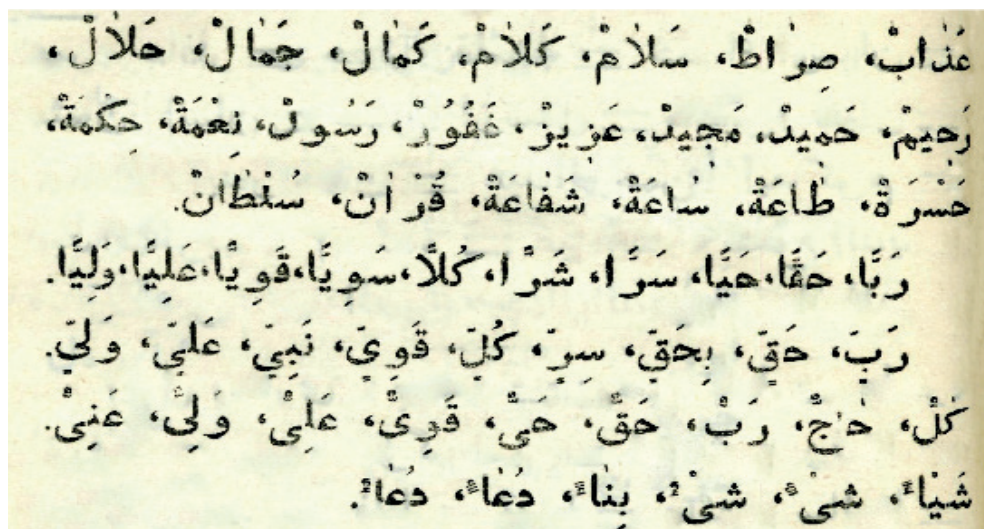 عَذٰابْ، صِرٰاطْ، سَلاٰمْ، كَلاٰمْ، كَمٰالْ، جَمٰالْ، حَلاٰلْ،
رَحيمْ، حَميدْ، مَجيدْ، عَزيزْ، غَفُورْ، رَسُولْ، نِعْمَةْ، حِكْمَةْ،
حَسْرَةْ، طٰاعَةْ، سٰاعَةْ، شَفٰاعَةْ، قُرْاٰنْ، سُلْطٰانْ.
رَبًّا، حَقًّا، حَيًّا، سَرًّا، شَرًّا، كُلًّا، سَوِيًّا، قَوِيًّا، عَلِيًّا، وَلِيًّا.
رَبٍّ، حَقٍّ، بِحَقٍّ، سِرٍّ، كُلٍّ، قَوِيٍّ، نَبِيٍّ، عَلِيٍّ، وَلِيٍّ.
كَلْ، حٰاجٌّ، رَبٌّ، حَقٌّ، حَىٌّ، قَوِىٌّ، عَلِىٌّ، وَلِىٌّ، غَنِىٌّ.
شَيْاءً، شَىْءٍ، شَىْءٌ، بِنٰاءً، دُعٰاءً، دُعٰاءٌ.